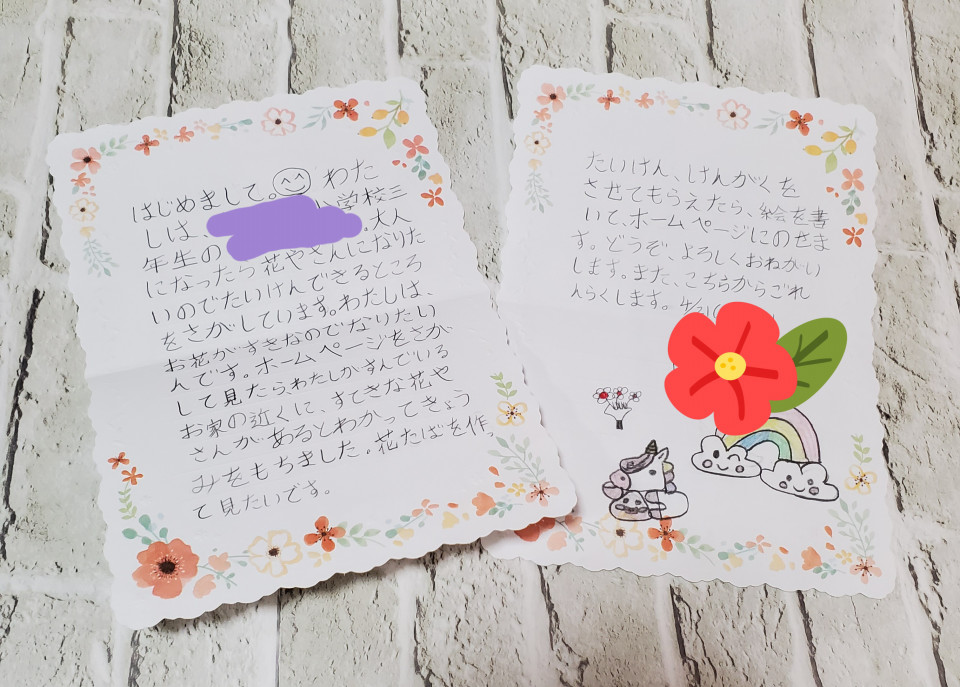 はじめまして。わた
しは、学校三
年生の。大人
になったら花やさんになりた
いのでたいけんできるところ
をさがしています。わたしは、
お花がすきなのでなりたい
んです。ホームページをさが
して見たらわたしがすんでいる
お家の近くに、すてきな花や
さんがあるとわかってきょう
みをもちました。花たばを作っ
て見たいです。
たいけん、けんがくを
させてもらえたら、絵を書
いて、ホームページにのせま
す。どうぞ、よろしくおねがい
します。また、こちらからごれ
んらくします。4/21